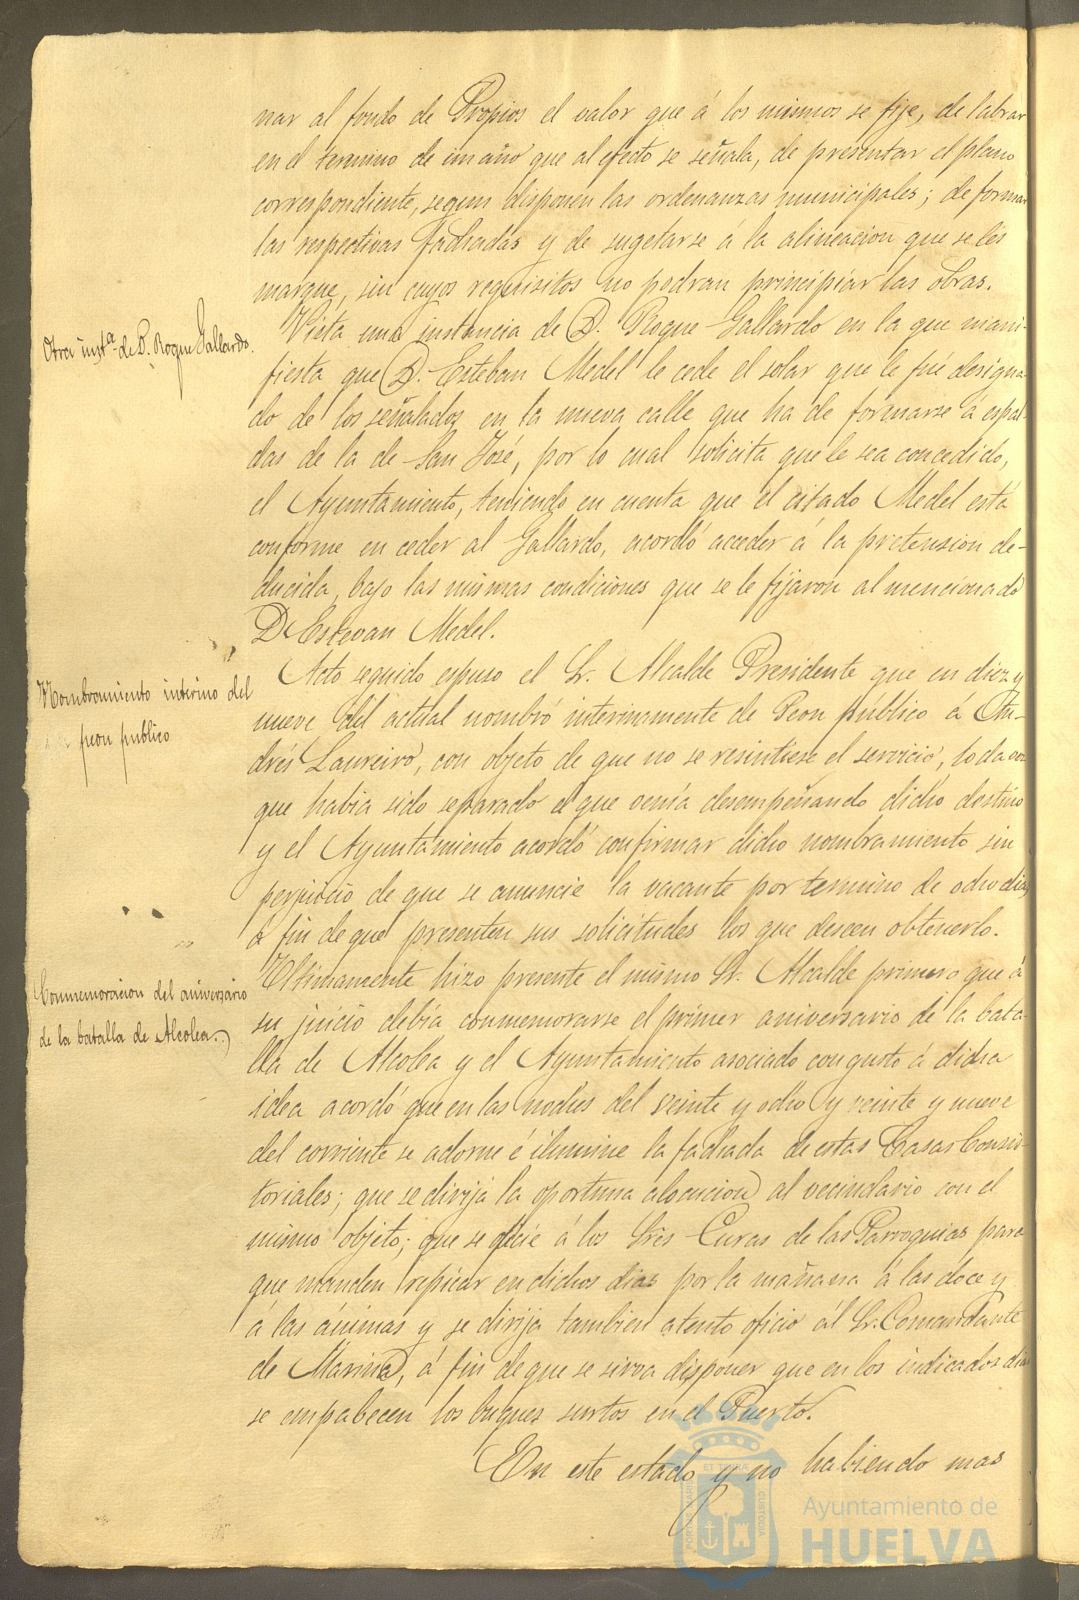 nar al fondo de Propios el valor que á los mismos se fije, de labrar
en el termino de un año que al efecto se señala, de presentar el plano
correspondiente, segun disponen las ordenanzas municipales; de formar
las respectivas fachadas y de sugetarse á la alineacion que se les
marque, sin cuyos requisitos no podran principiar las obras.
Otra insta. de D. Roque Gallardo.
Vista una instancia de D. Roque Gallardo en la que mani-
fiesta que D. Esteban Medel le cede el solar que le fué designa-
do de los señalados en la nueva calle que ha de formarse á espal-
das de la de San José, por lo cual solicita que le sea concedido,
el Ayuntamiento, teniendo en cuenta que el citado Medel está
conforme en ceder al Gallardo, acordó acceder á la pretension de-
ducida, bajo las mismas condiciones que se le fijaron al mencionado
D Estevan Medel.
Nombramiento interino del
peon publico
Acto seguido espuso el Sr. Alcalde Presidente que en diez y
nueve del actual nombró interinamente de Peon público á An-
drés Laureiro, con objeto de que no se resintiese el servicio, toda vez
que habia sido separado el que venía desempeñando dicho destino
y el Ayuntamiento acordó confirmar dicho nombramiento sin
perjuicio de que se anuncie la vacante por termino de ocho dias
á fin de que presenten sus solicitudes los que deseen obtenerlo.
Conmemoracion del aniversario
de la batalla de Alcolea.
Ultimamente hizo presente el mismo Sr. Alcalde primero que á
su juicio debía conmemorarse el primer aniversario de la bata-
lla de Alcolea y el Ayuntamiento asociado con gusto á dicha
idea acordó que en las noches del veinte y ocho y veinte y nueve
del corriente se adorne é ilumine la fachada de estas Casas Consis-
toriales; que se dirija la oportuna alocucion al vecindario con el
mismo objeto; que se oficie á los Sres Curas de las Parroquias para
que manden repicar en dichos dias por la mañana á las doce y
á las ánimas y se dirija tambien atento oficio ál Sr. Comandante
de Marina, á fin de que se sirva disponer que en los indicados dias
se empabecen los buques surtos en el Puerto.
En este estado y no habiendo mas
Ayuntamiento de
HUELVA